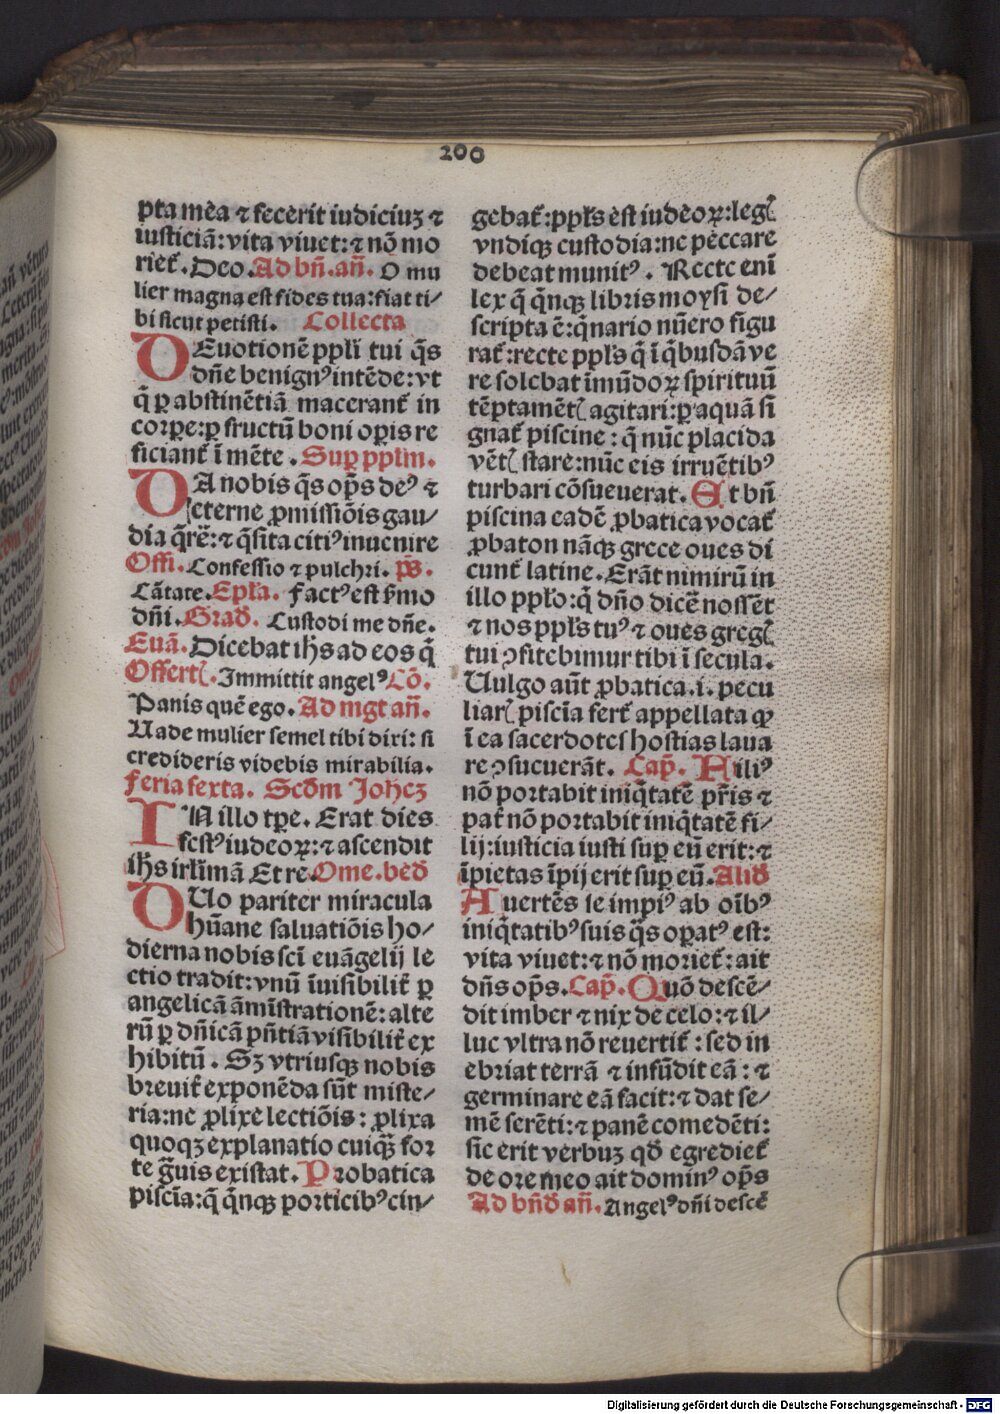 200
pta mea ⁊ fecerit iudiciuꝫ ⁊
iusticiã: vita viuet: ⁊ nõ mo
riet᷑. Deo. Ad bñ. añ. O mu
lier magna est fides tua: fiat ti⸗
bi sicut petisti. Collecta
DEuotionẽ ppli̅ tui q̃s
dñe benignꝰ intẽde: vt
q̃ ꝑ abstinẽtiã macerant᷑ in
corpe: ꝑ fructũ boni oꝑis re
ficiant᷑ ĩ mẽte. Suꝑ pplm̅.
DA nobis q̃s op̃s deꝰ ⁊
eterne ꝓmissiõis gau⸗
dia q̃rẽ: ⁊ q̃sita citiꝰ inuenire
Offi. Confessio ⁊ pulchri. p̃s.
Cãtate. Epl̃a. factꝰ est ẜmo
dñi. Grad̃. Custodi me dñe.
Euã. Dicebat ih̃s ad eos q̃
Offertꝭ. Immittit angelꝰ Cõ.
Panis quẽ ego. Ad mgt añ.
Uade mulier semel tibi dixi: si
credideris videbis mirabilia.
feria sexta. Scd̃m Joheꝫ
IN illo tꝑe. Erat dies
festꝰ iudeoꝝ: ⁊ ascendit
ih̃s irl̃imã Et re. Ome. bed̃
DUo pariter miracula
hũane saluatiõis ho⸗
dierna nobis sc̃i euãgelij le
ctio tradit: vnũ ĩuisibilit᷑ ꝑ
angelicã ãmĩstrationẽ: alte
rũ ꝑ dñicã pñtiã visibilit᷑ ex
hibitũ. Sꝫ vtriusqꝫ nobis
breuit᷑ exponẽda sũt miste⸗
ria: ne ꝓlixe lectiõis: ꝓlixa
quoqꝫ explanatio cuiqꝫ for
te g̃uis existat. Probatica
piscĩa: q̃ q̃nqꝫ porticibꝰ cin⸗
gebat᷑: ppl̃s est iudeoꝝ: legꝭ
vndiqꝫ custodia: ne peccare
debeat munitꝰ. Recte enĩ
lex q̃ q̃nqꝫ libris moysi de⸗
scripta ẽ: q̃nario nũero figu
rat᷑: recte ppl̃s q̃ ĩ q̃busdã ve
re solebat ĩmũdoꝝ spirituũ
tẽptamẽtꝭ agitari: ꝑ aquã si
gnat᷑ piscine: q̃ nũc placida
vẽtꝭ stare: nũc eis irruẽtibꝰ
turbari cõsueuerat. Et bñ
piscina eadẽ ꝓbatica vocat᷑
ꝓbaton nãqꝫ grece oues di
cunt᷑ latine. Erãt nimirũ in
illo ppl̃o: q̃ dño dicẽ nossẽt
⁊ nos ppl̃s tuꝰ ⁊ oues gregꝭ
tui ꝯfitebimur tibi ĩ secula.
Uulgo aũt ꝓbatica. i. pecu
liarꝭ piscĩa fert᷑ appellata qꝙ
ĩ ea sacerdotes hostias laua
re ꝯsueuerãt. Cap̃. Filiꝰ
nõ portabit iniq̃tatẽ pr̃is ⁊
pat᷑ nõ portabit iniq̃tatẽ fi⸗
lij: iusticia iusti suꝑ eũ erit: ⁊
ĩpietas ĩpij erit suꝑ eũ. Aliđ
Auertẽs se impiꝰ ab oĩbꝰ
iniq̃tatibꝰ suis q̃s oꝑatꝰ est:
vita viuet: ⁊ nõ moriet᷑: ait
dñs op̃s. Cap̃. Quõ descẽ⸗
dit imber ⁊ nix de celo: ⁊ il⸗
luc vltra nõ reuertit᷑: sed in
ebriat terrã ⁊ infũdit eã: ⁊
germinare eã facit: ⁊ dat se⸗
mẽ serẽti: ⁊ panẽ comedẽti:
sic erit verbuꝫ qđ egrediet᷑
de ore meo ait dominꝰ op̃s
Ad bñđ añ. Angelꝰ dñi descẽ
Digitalisierung gefördert durch die Deutsche Forschungsgemeinschaft - DFG